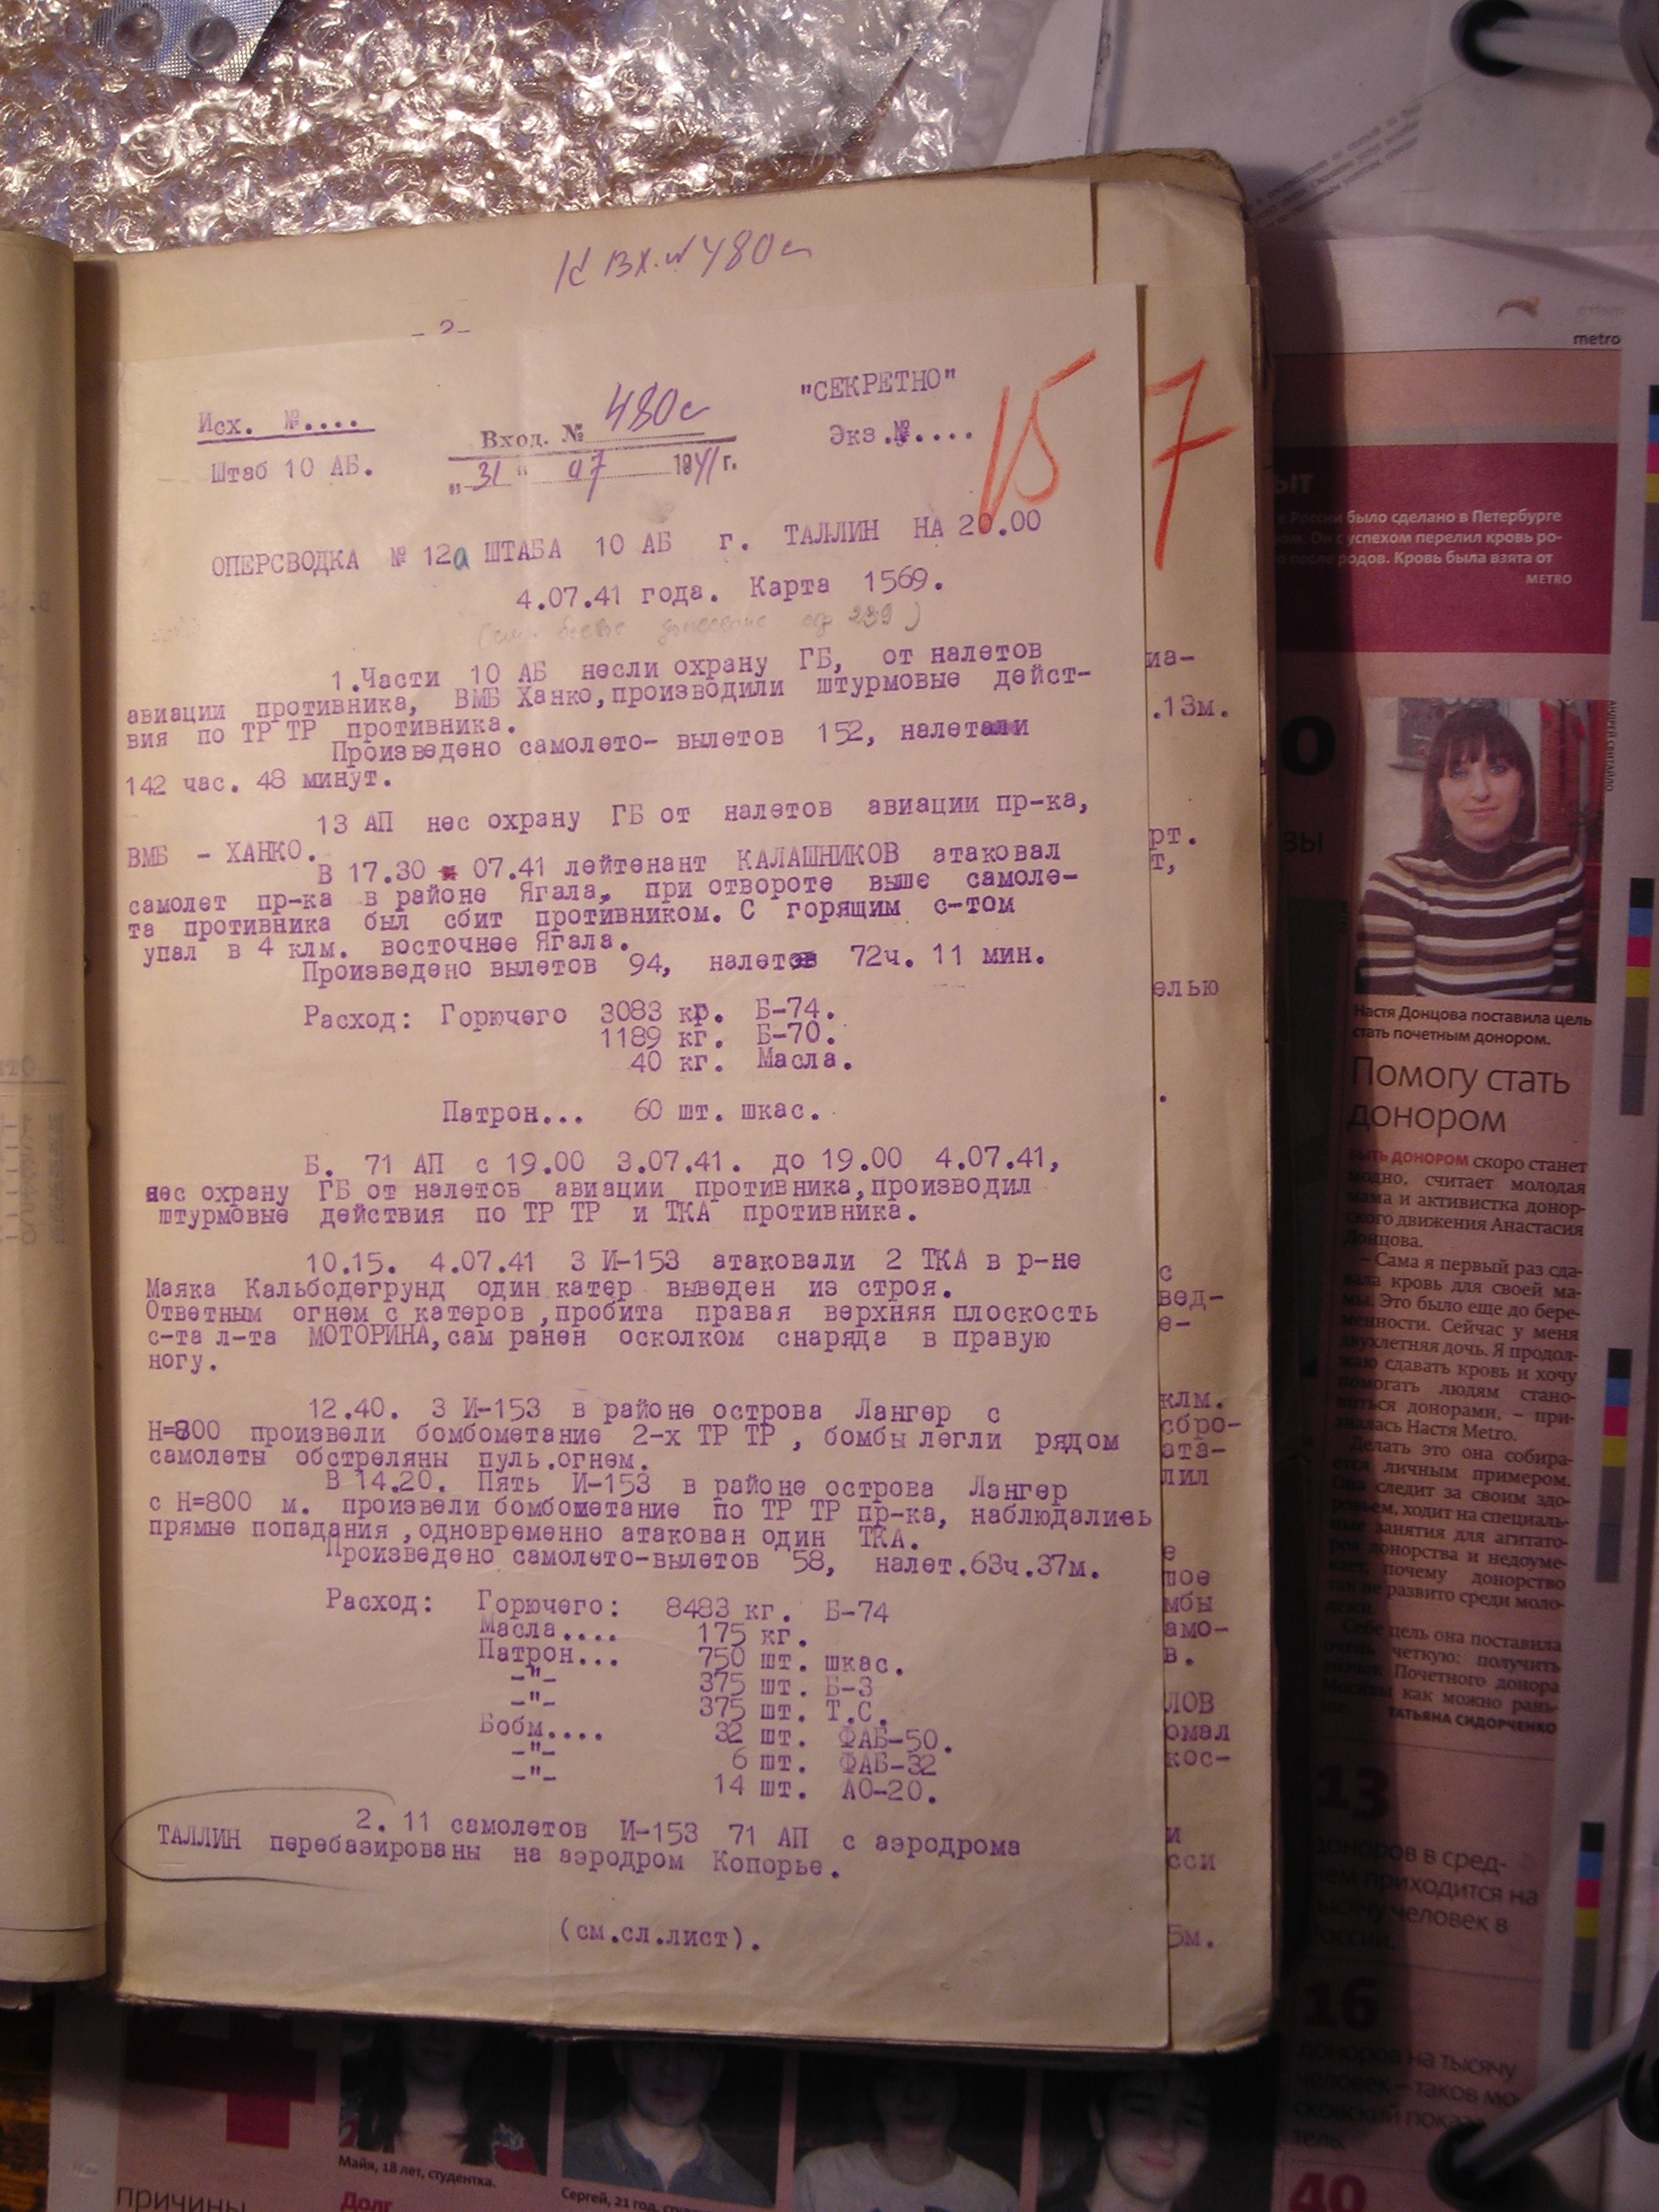 К вх.№480с
-2-
"СЕКРЕТНО"
Исх. №....
Вход. № 480с
Экз.№....
Штаб 10 АБ.
"31" 07 1941 г.
15
7
ОПЕРСВОДКА № 12а ШТАБА 10 АБ г. ТАЛЛИН НА 20.00
4.07.41 года. Карта 1569.
1.Части 10 АБ несли охрану ГБ, от налетов
авиации противника, ВМБ Ханко,производили штурмовые дейст-
вия по ТР ТР противника.
Произведено самолето- вылетов 152, налетали
142 час. 48 минут.
13 АП нес охрану ГБ от налетов авиации пр-ка,
ВМБ - ХАНКО.
В 17.30 07.41 лейтенант КАЛАШНИКОВ атаковал
самолет пр-ка в районе Ягала, при отвороте выше самоле-
та противника был сбит противником. С горящим с-том
упал в 4 клм. восточнее Ягала.
Произведено вылетов 94, налетов 72ч. 11 мин.
Расход: Горючего 3083 кг. Б-74.
1189 кг. Б-70.
40 кг. Масла.
Патрон... 60 шт. шкас.
Б. 71 АП с 19.00 3.07.41. до 19.00 4.07.41,
нес охрану ГБ от налетов авиации противника,производил
штурмовые действия по ТР ТР и ТКА противника.
10.15. 4.07.41 3 И-153 атаковали 2 ТКА в р-не
Маяка Кальбодегрунд один катер выведен из строя.
Ответным огнем с катеров ,пробита правая верхняя плоскость
с-та л-та МОТОРИНА,сам ранен осколком снаряда в правую
ногу.
12.40. 3 И-153 в районе острова Лангер с
Н=800 произвели бомбометание 2-х ТР ТР , бомбы легли рядом
самолеты обстреляны пуль.огнем.
В 14.20. Пять И-153 в районе острова Лангер
с Н=800 м. произвели бомбометание по ТР ТР пр-ка, наблюдались
прямые попадания ,одновременно атакован один ТКА.
Произведено самолето-вылетов 58, налет.63ч.37м.
Расход: Горючего: 8483 кг. Б-74
Масла.... 175 кг.
Патрон... 750 шт. шкас.
-"- 375 шт. Б-3
-"- 375 шт. Т.С.
Бобм.... 32 шт. ФАБ-50.
-"- 6 шт. ФАБ-32
-"- 14 шт. АО-20.
2. 11 самолетов И-153 71 АП с аэродрома
ТАЛЛИН перебазированы на аэродром Копорье.
(см.сл.лист).
иа-
.13м.
рт.
т,
елью
.
с
вед-
е-
клм.
сбро-
ата-
лил
е
мбы
амо-
в.
ЛОВ
омал
кос-
и
сси
5м.
metro
было сделано в Петербурге
успехом перелил кровь ро-
родов. Кровь была взята от
METRO
Настя Донцова поставила цель
стать почетным донором.
Помогу стать
донором
БЫТЬ ДОНОРОМ скоро станет
модно, считает молодая
мама и активистка донор-
ского движения Анастасия
Донцова.
– Сама я первый раз сда-
вала кровь для своей ма-
мы. Это было еще до бере-
менности. Сейчас у меня
двухлетняя дочь. Я продол-
жаю сдавать кровь и хочу
помогать людям стано-
виться донорами, – при-
зналась Настя Metro.
Делать это она собира-
ется личным примером.
Она следит за своим здо-
ровьем, ходит на специаль-
ные занятия для агитато-
ров донорства и недоуме-
вает, почему донорство
так не развито среди моло-
дежи.
Себе цель она поставила
очень четкую: получить
значок Почетного донора
Москвы как можно рань-
ше. ТАТЬЯНА СИДОРЧЕНКО
13
доноров в сред-
нем приходится на
тысячу человек в
России.
16
доноров на тысячу
человек – таков мо-
сковский показа-
тель.
40
Майя, 18 лет, студентка.
Сергей, 21 год,
причины
Долг